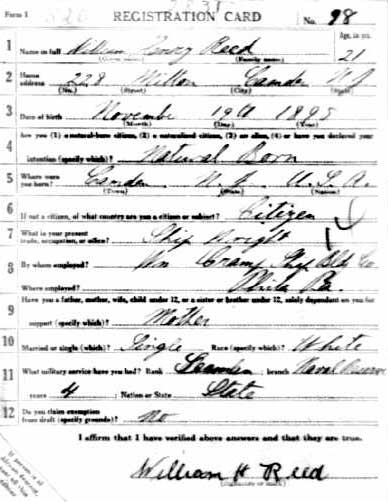 Form 1 REGISTRATION CARD No. 98
1 Name in full William Henry Reed Age, in yrs. 21
(Given name) (Family name)
2 Home address 228 Milton Camden N J
(No.) (Street) (City) (State)
3 Date of birth November 19th 1895
(Month) (Day) (Year)
4 Are you (1) a natural-born citizen, (2) a naturalized citizen, (3) an alien, (4) or have you declared your
intention (specify which)? Natural Born
5 Where were you born? Camden N. J. U.S.A.
(Town) (State) (Nation)
6 If not a citizen, of what country are you a citizen or subject? Citizen
7 What is your present trade, occupation, or office? Ship Wright
8 By whom employed? Wm Cramp Ship Bldg Co.
Where employed? Phila Pa.
9 Have you a father, mother, wife, child under 12, or a sister or brother under 12, solely dependent on you for
support (specify which)? Mother
10 Married or single (which)? Single Race (specify which)? White
11 What military service have you had? Rank Seaman ; branch Naval Reserve
years 4 ; Nation or State State
12 Do you claim exemption from draft (specify grounds)? No
I affirm that I have verified above answers and that they are true.
William H Reed
If person is of African descent,